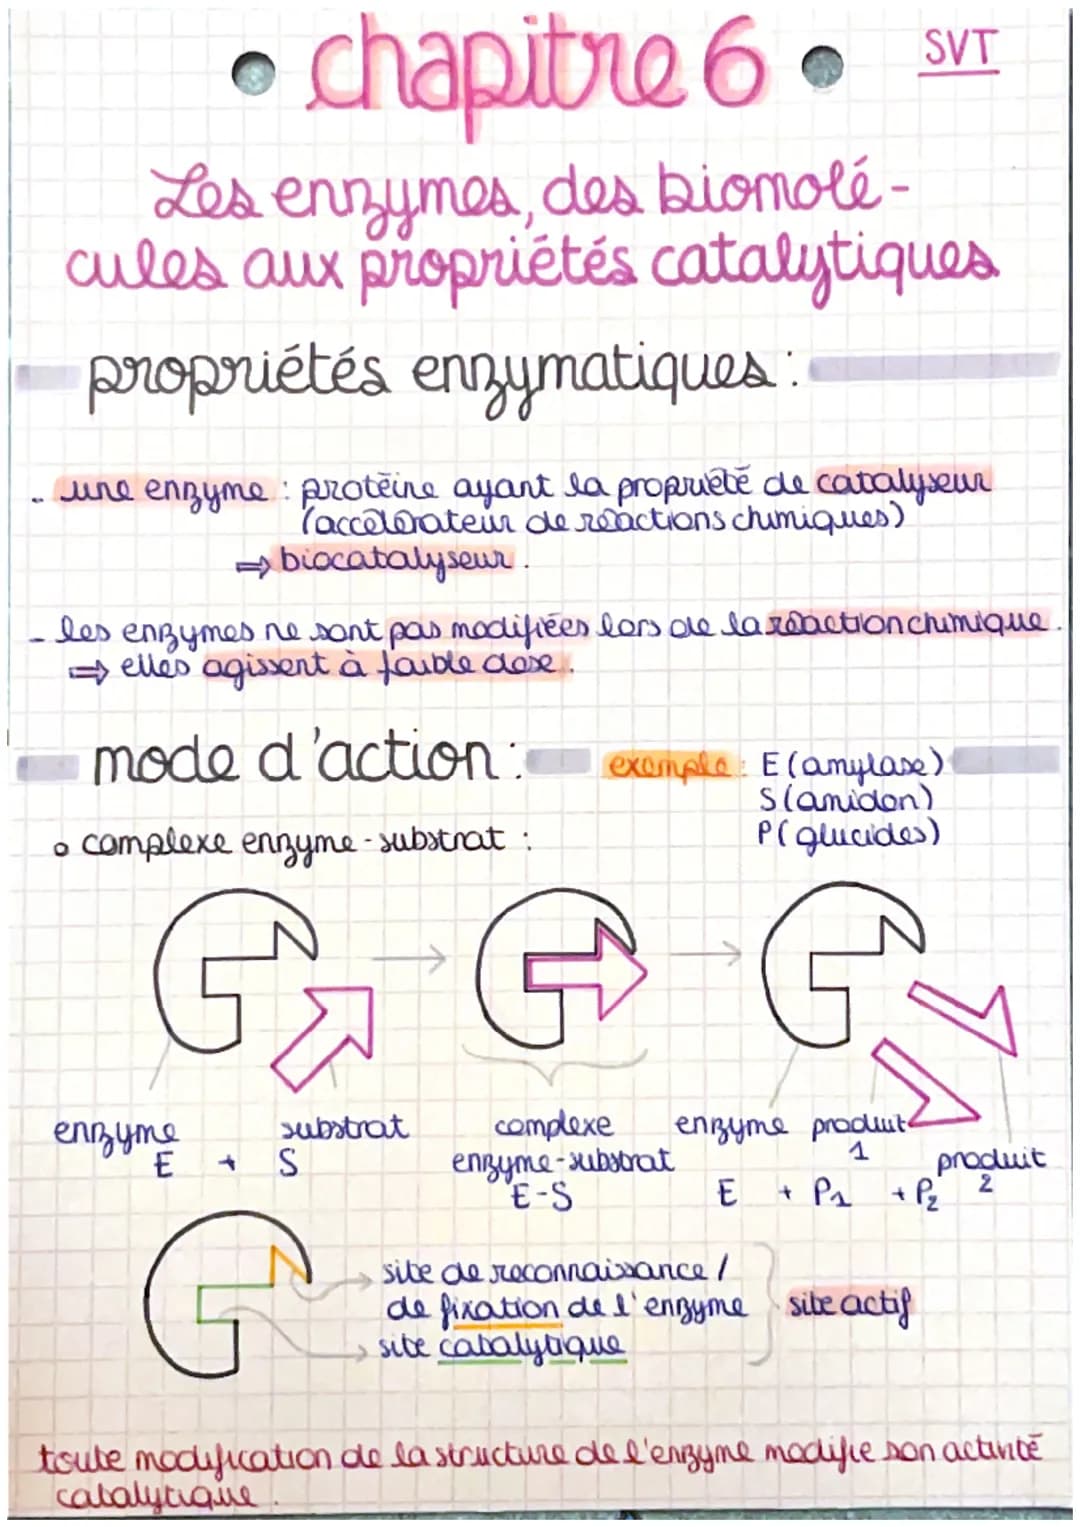 • chapitre 6 •
SVT
Les enzymes, des biomolé-
cules aux propriétés catalytiques
propriétés enzymatiques :
- une enzyme : protéine ayant la propriété de catalyseur
(accélérateur de réactions chimiques)
⇒ biocatalyseur.
- les enzymes ne sont pas modifiées lors de la réaction chimique.
⇒ elles agissent à faible dose.
mode d'action :
exemple : E (amylase)
S (amidon)
P (glucides)
o complexe enzyme-substrat :
enzyme
E + S
substrat
complexe
enzyme-substrat
E-S
enzyme produit
1
produit
2
E + P1 + P2
site de reconnaissance /
de fixation de l'enzyme
site catalytique
site actif
toute modification de la structure de l'enzyme modifie son activité
catalytique.